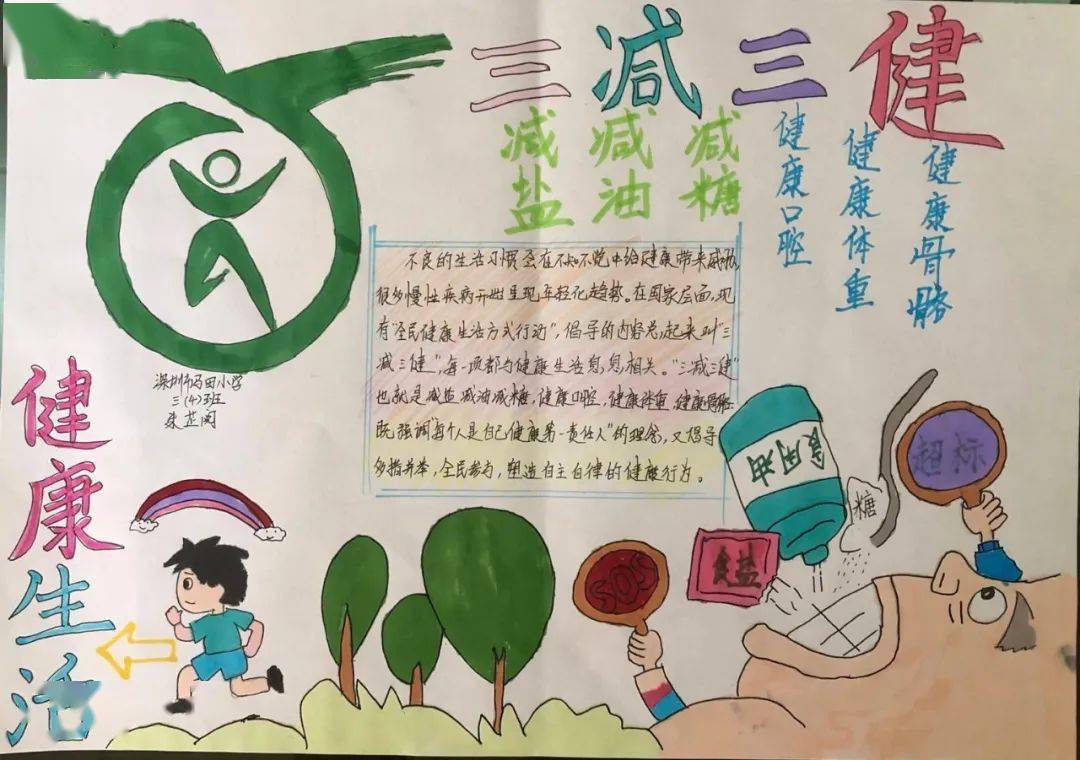 三减三健
减盐
减油
减糖
健康口腔
健康体重
健康骨骼
不良的生活习惯会在不知不觉中给健康带来威胁,
很多慢性疾病开始呈现年轻化趋势。在国家层面,现
有“全民健康生活方式行动”,倡导的内容总起来叫“三
减三健”,每一项都与健康生活息息相关。“三减三健”
也就是减盐减油减糖,健康口腔,健康体重,健康骨骼
既强调“每个人是自己健康第一责任人”的理念,又倡导
多措并举,全民参与,塑造自主自律的健康行为。
深圳市马田小学
三(4)班
朱芷
健康生活
食用油
糖
超标
食盐
SOS